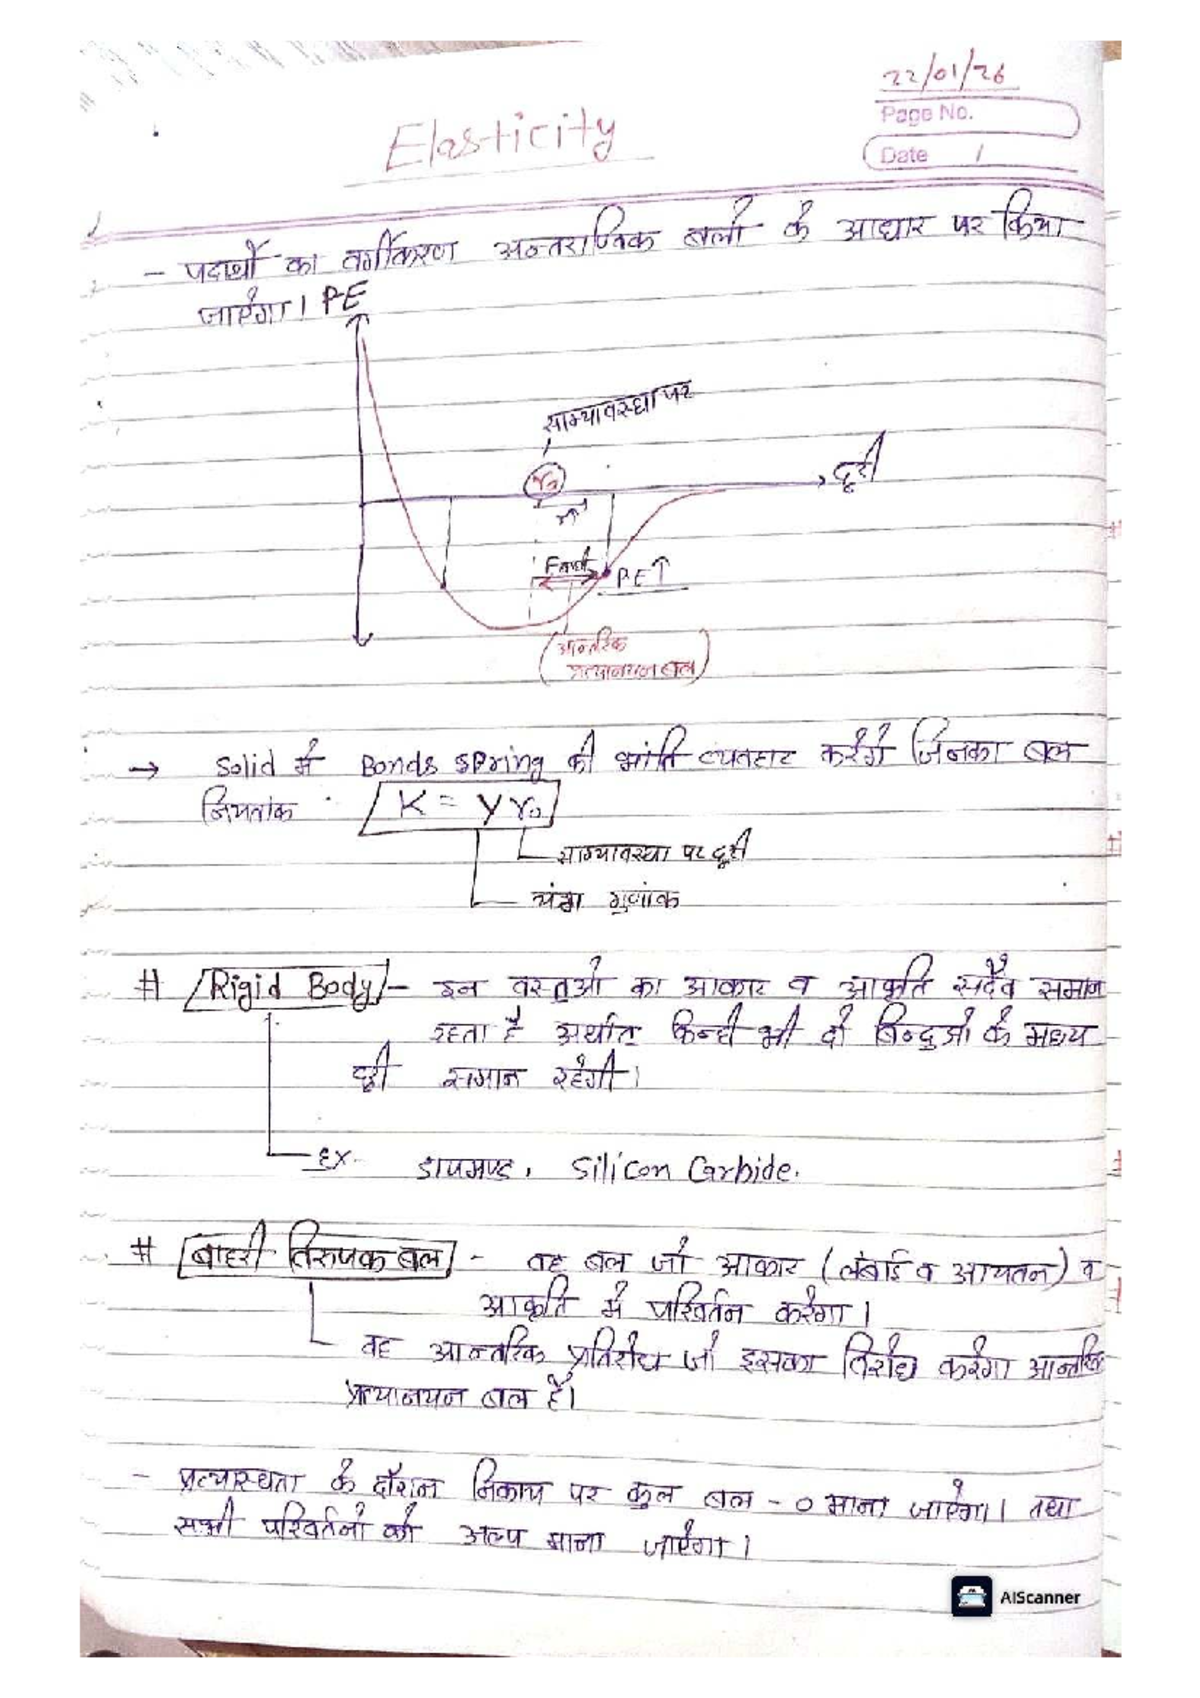 22/01/26
Page No.
Date /
Elasticity
- पदार्थो का वर्गीकरण अन्तराण्विक बलो के आधार पर किया
जाऐगा। PE
साम्यावस्था पर
r₀
दूरी
r↑
PE↑
(आन्तरिक
प्रत्यानयन बल)
→ Solid मे Bonds spring की भांति व्यवहार करेगे जिनका बल
नियतांक K = Y r₀
साम्यावस्था पर दूरी
यंग गुणांक
# Rigid Body - इन वस्तुओ का आकार व आकृति सदैव समान
रहता है अर्थात किन्ही भी दो बिन्दुओ के मध्य
दूरी समान रहेगी।
Ex. डायमण्ड, Silicon Carbide.
# बाहरी विरुपक बल - वह बल जो आकार (लंबाई व आयतन) व
आकृति मे परिवर्तन करेगा।
वह आन्तरिक प्रतिरोध जो इसका विरोध करेगा आन्तरिक
प्रत्यानयन बल है।
- प्रत्यास्थता के दौरान निकाय पर कुल बल - 0 माना जाऐगा। तथा
सभी परिवर्तनो को अल्प माना जाऐगा।
AIScanner